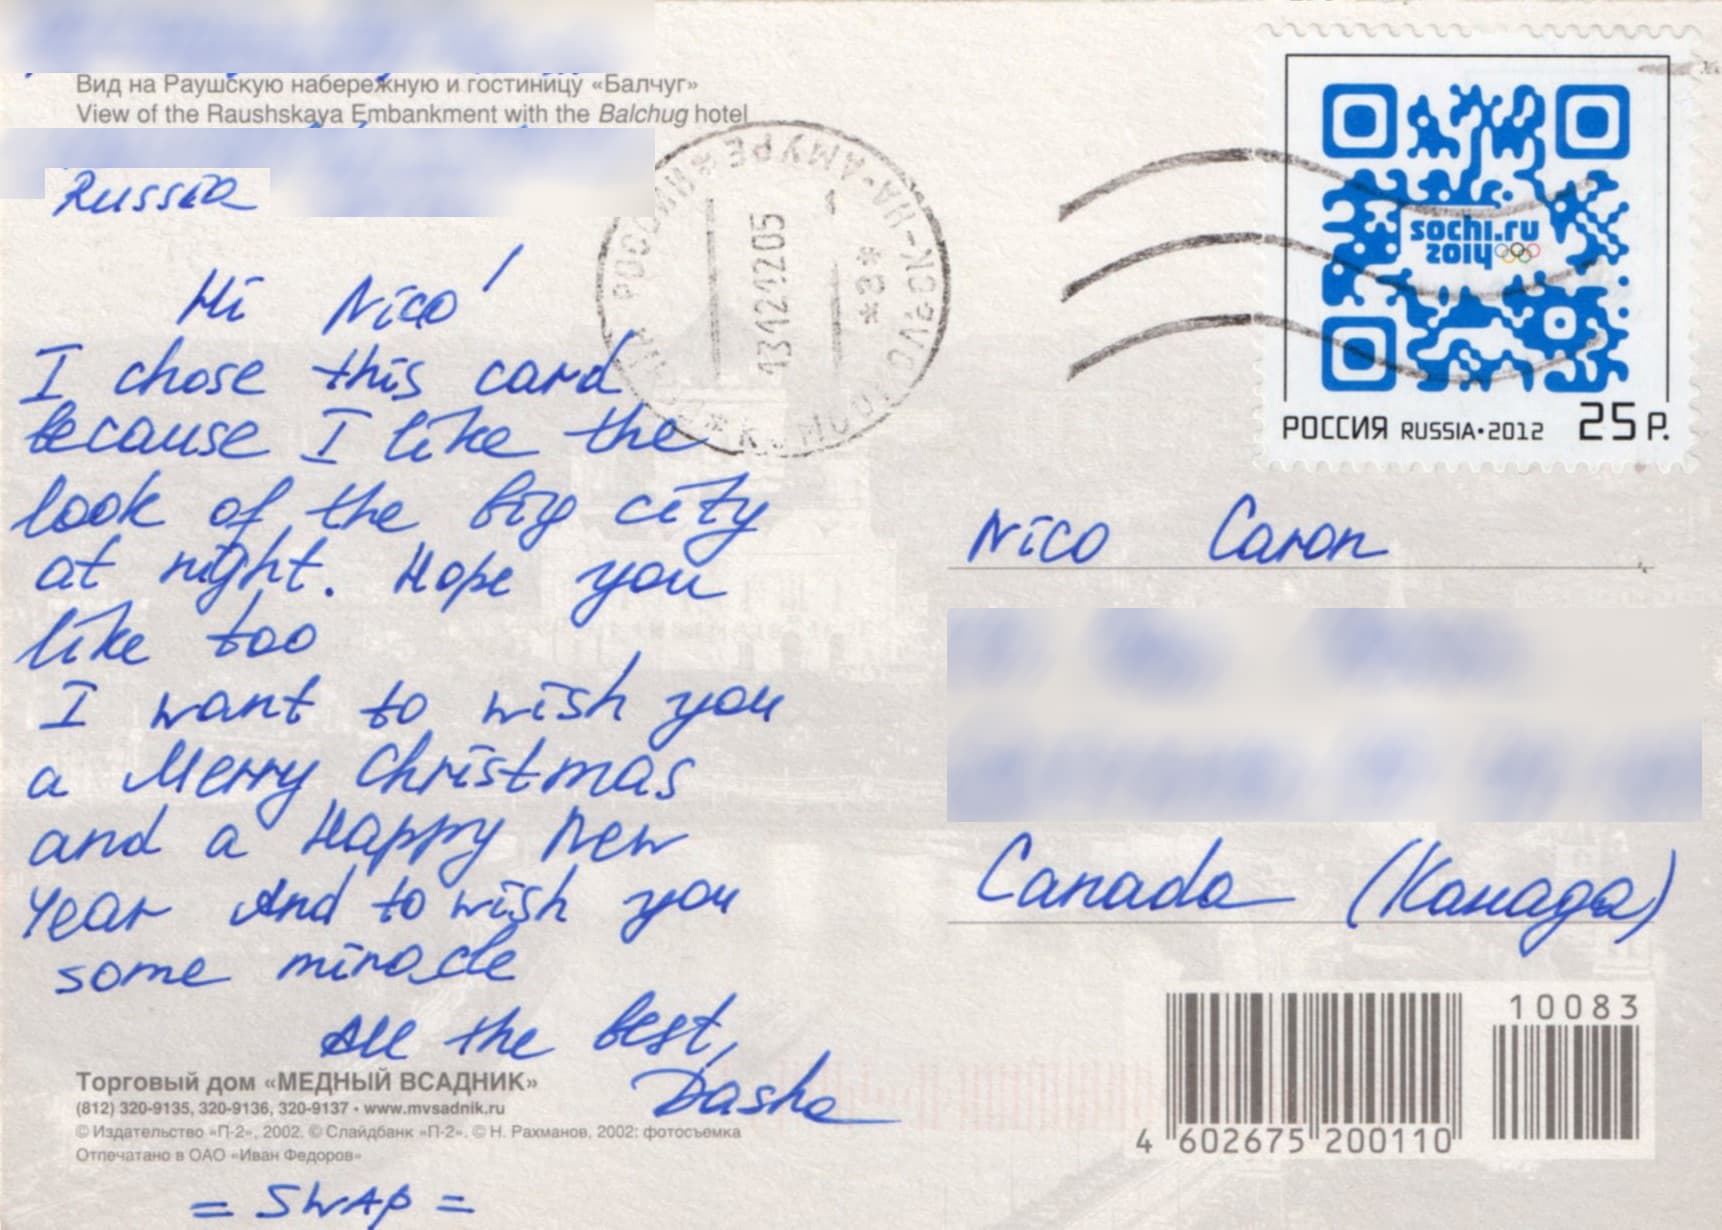 Вид на Раушскую набережную и гостиницу «Балчуг»
View of the Raushskaya Embankment with the Balchug hotel
Russia
Hi Nico!
I chose this card
because I like the
look of the big city
at night. Hope you
like too
I want to wish you
a Merry Christmas
and a Happy New
Year And to wish you
some miracle
All the best,
Dasha
Торговый дом «МЕДНЫЙ ВСАДНИК»
(812) 320-9135, 320-9136, 320-9137 • www.mvsadnik.ru
© Издательство «П-2», 2002. © Слайдбанк «П-2». © Н. Рахманов, 2002: фотосъемка
Отпечатано в ОАО «Иван Федоров»
= SWAP =
НА-АМУРЕ
13121205
sochi.ru
2014
РОССИЯ RUSSIA•2012 25 Р.
Nico Caron
Canada (Канада)
10083
4 602675 200110